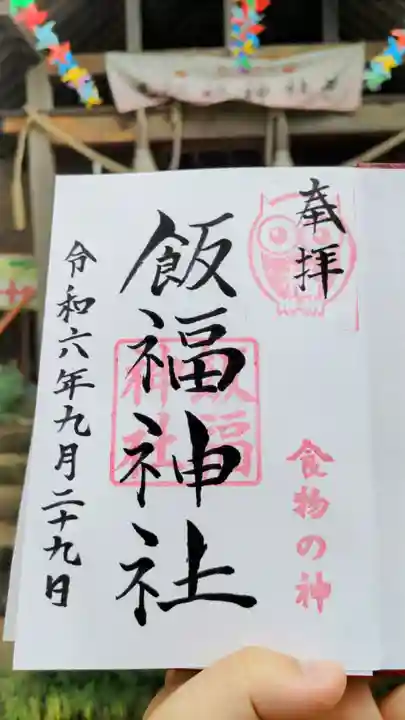 奉拝
食物の神
飯福神社
飯福
神社
令和六年九月二十九日